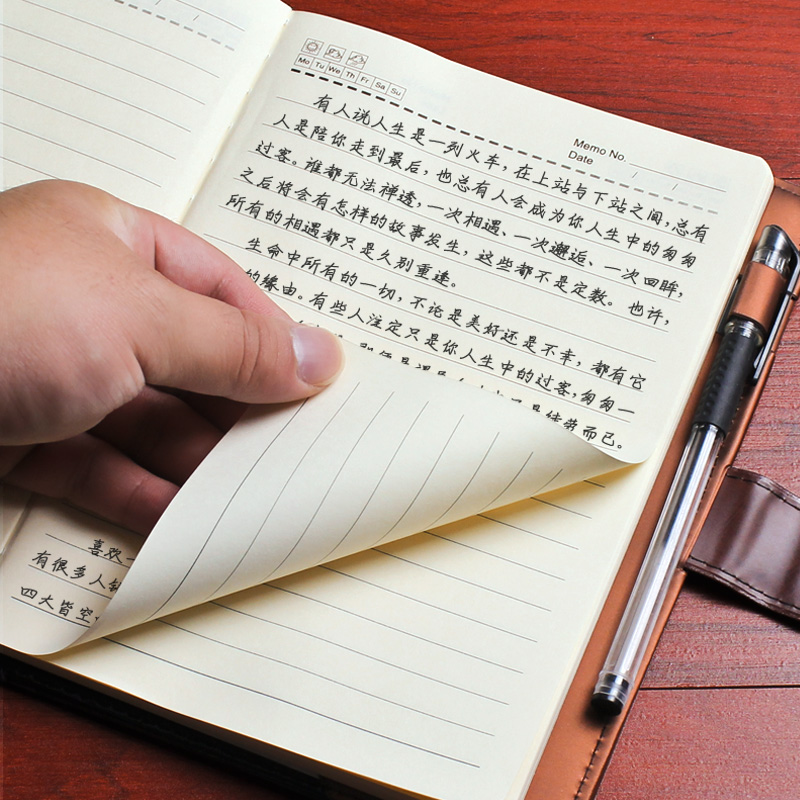 Mo Tu We Th Fr Sa Su
Memo No.
Date / /
有人说人生是一列火车,在上站与下站之间,总有
人是陪你走到最后,也总有人会成为你人生中的匆匆
过客。谁都无法禅透,一次相遇、一次邂逅、一次回眸,
之后将会有怎样的故事发生,这些都不是定数。也许,
所有的相遇都只是久别重逢。
生命中所有的一切,不论是美好还是不幸,都有它
的缘由。有些人注定只是你人生中的过客,匆匆一
而已。
喜欢一
有很多人
四大皆空